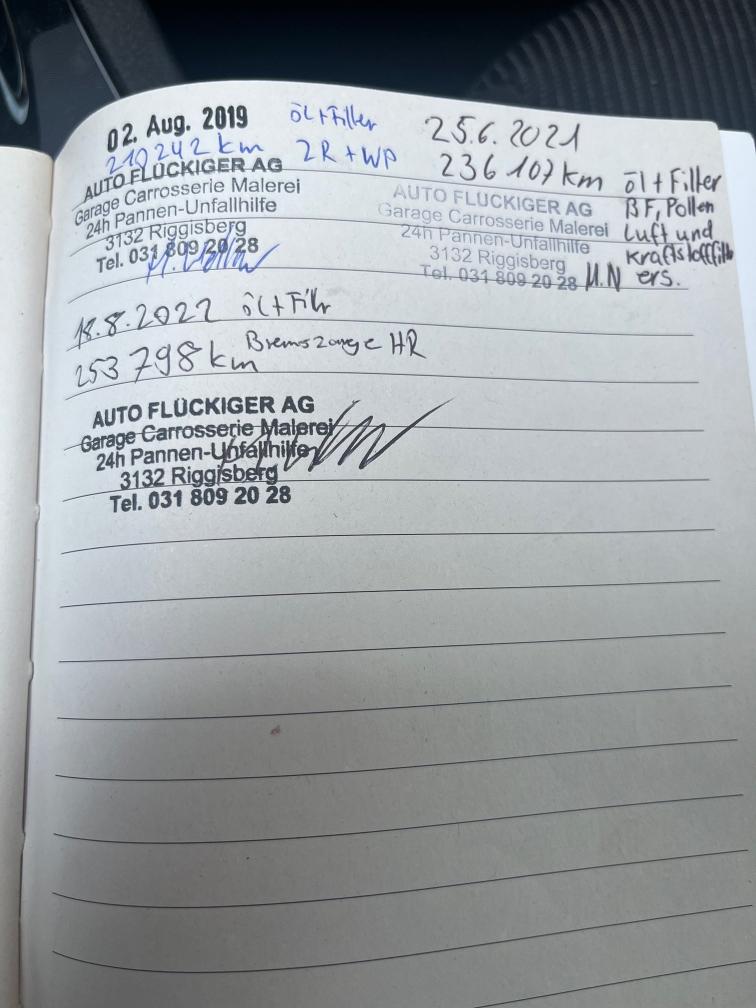 02. Aug. 2019
öl+Filter
210242 km
2R+WP
AUTO FLÜCKIGER AG
Garage Carrosserie Malerei
24h Pannen-Unfallhilfe
3132 Riggisberg
Tel. 031 809 20 28
25.6.2021
236 107 km
öl+Filter
BF, Pollen
Luft und
Kraftstofffilter
ers.
AUTO FLÜCKIGER AG
Garage Carrosserie Malerei
24h Pannen-Unfallhilfe
3132 Riggisberg
Tel. 031 809 20 28
M.N
18.8.2022 öl+Filtr
253 798 km
Bremszange HR
AUTO FLÜCKIGER AG
Garage Carrosserie Malerei
24h Pannen-Unfallhilfe
3132 Riggisberg
Tel. 031 809 20 28